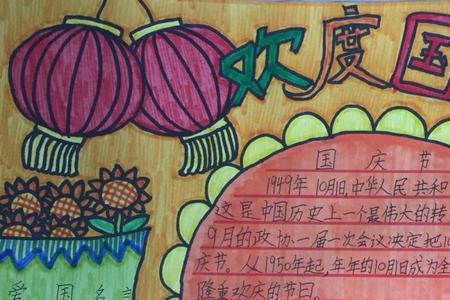 欢度国
国庆节
1949年10月1日,中华人民共和
这是中国历史上一个最伟大的转
9月的政协一届一次会议决定把10
庆节。从1950年起,年年的10月1日成为全
隆重欢庆的节日。
爱国名言